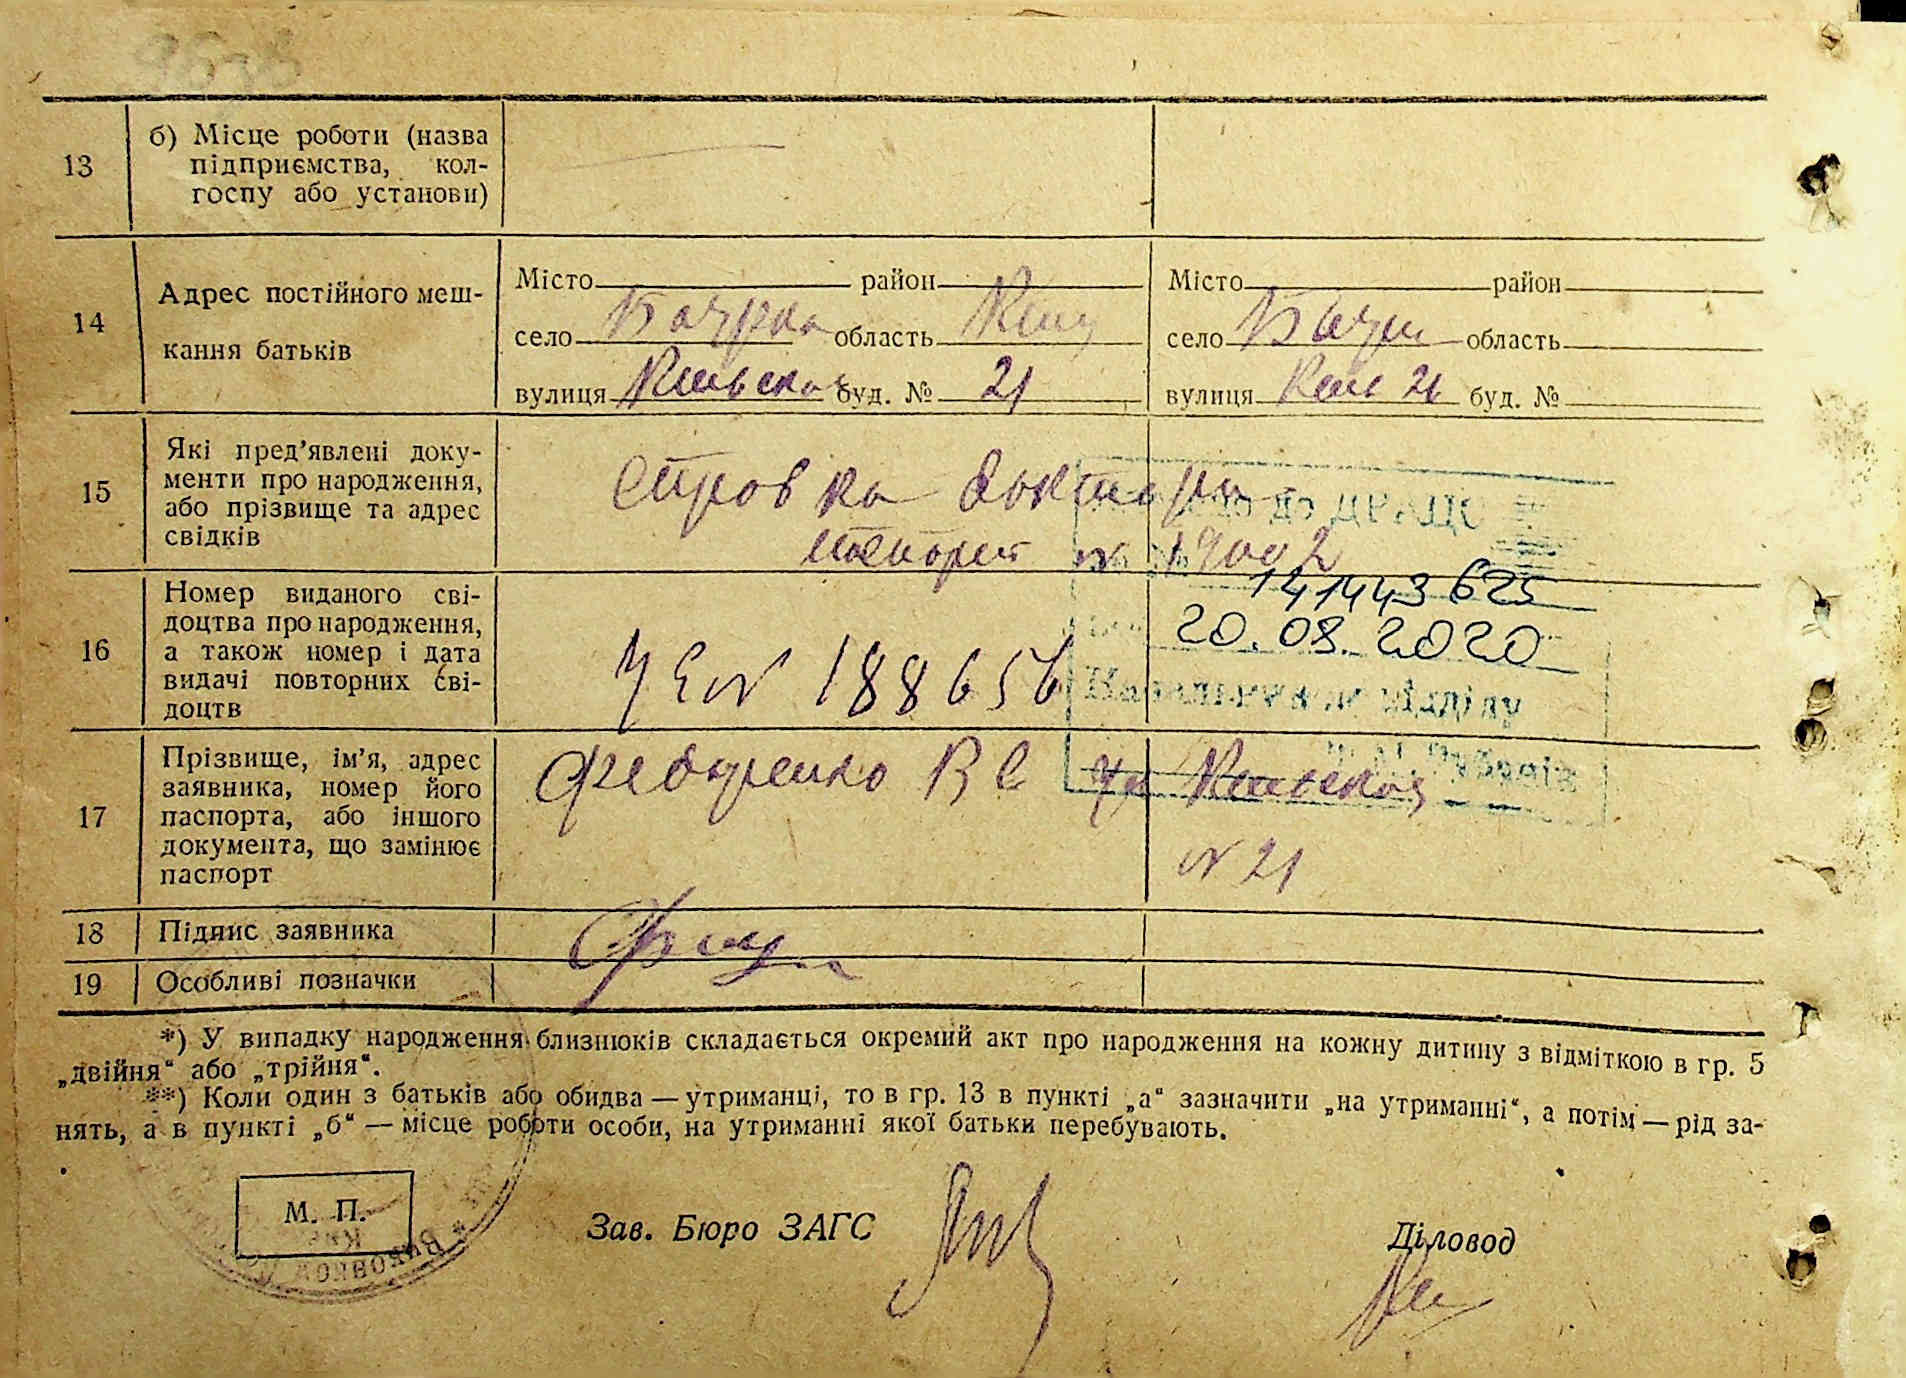 13
б) Місце роботи (назва
підприємства, кол-
госпу або установи)
14
Адрес постійного меш-
кання батьків
Місто район
село Боярка область Киев
вулиця Киевская буд. № 21
Місто район
село область
вулиця Киев 21 буд. №
15
Які пред'явлені доку-
менти про народження,
або прізвище та адрес
свідків
справка
№ 19002
16
Номер виданого сві-
доцтва про народження,
а також номер і дата
видачі повторних сві-
доцтв
№ 188656
141443625
20.08.2020
17
Прізвище, ім'я, адрес
заявника, номер його
паспорта, або іншого
документа, що замінює
паспорт
Федоренко В С ул Киевская
№ 21
18
Підпис заявника
19
Особливі позначки
*) У випадку народження близнюків складається окремий акт про народження на кожну дитину з відміткою в гр. 5
„двійня“ або „трійня“.
**) Коли один з батьків або обидва — утриманці, то в гр. 13 в пункті „а“ зазначити „на утриманні“, а потім — рід за-
нять, а в пункті „б“ — місце роботи особи, на утриманні якої батьки перебувають.
М. П.
Зав. Бюро ЗАГС
Діловод